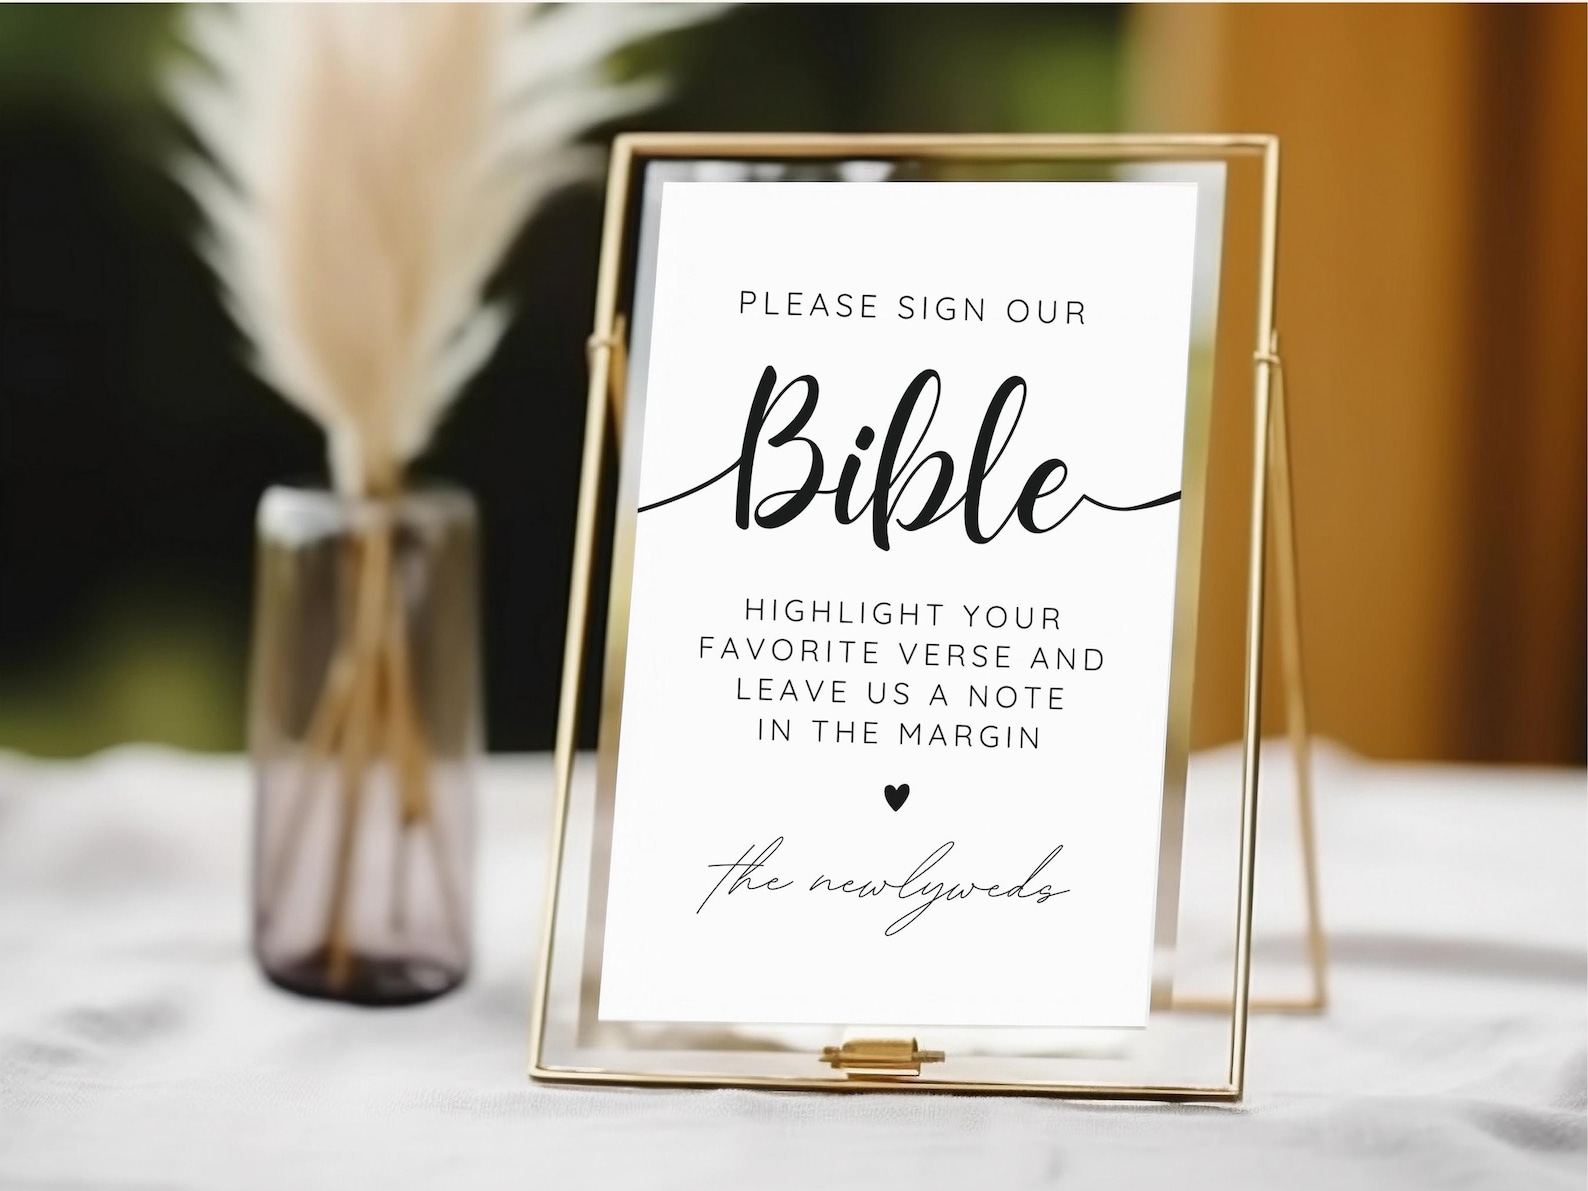 PLEASE SIGN OUR
Bible
HIGHLIGHT YOUR
FAVORITE VERSE AND
LEAVE US A NOTE
IN THE MARGIN
the newlyweds